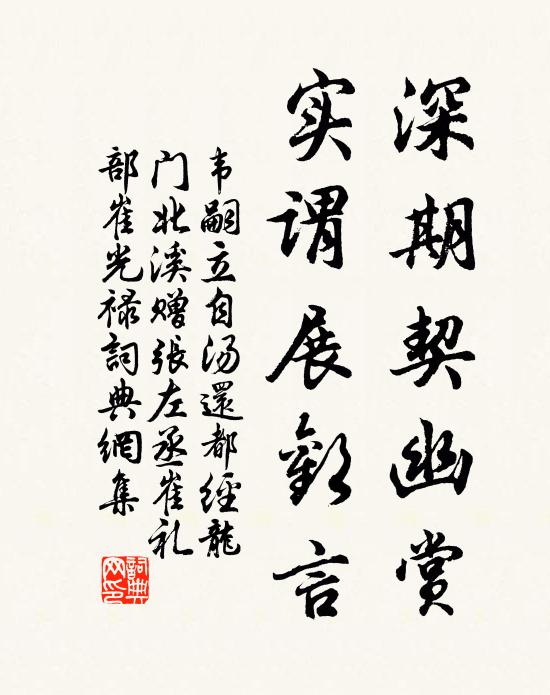 深期契幽赏
实谓展欢言
韦嗣立自汤還都經龍
门北溪赠張左丞崔礼
部崔光禄詞典網集
詞典网印